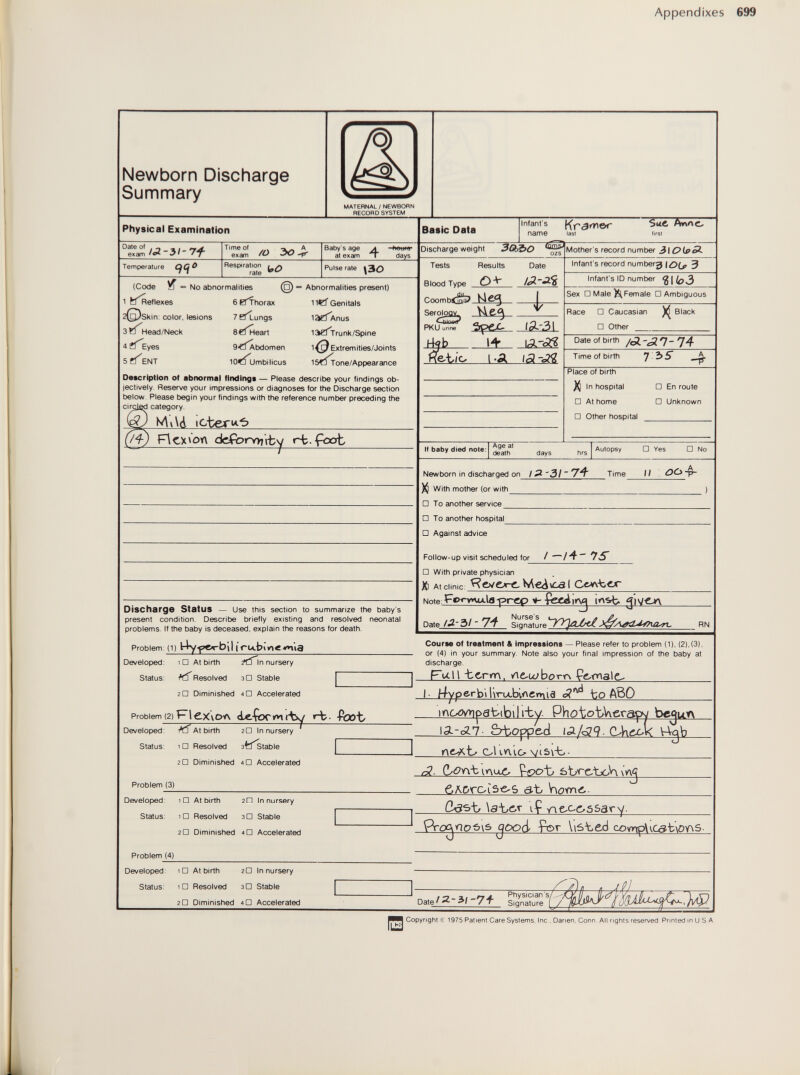 Appendixes 699
Newborn Discharge
Summary
MATERNAL / NEWBORN
RECORD SYSTEM
Physical Examination
Date of exam 12-31-74 Time of exam 10 30 A Baby's age at exam 4 hours days
Temperature 99° Respiration rate 60 Pulse rate 130
(Code = No abnormalities = Abnormalities present)
1 Reflexes 6 Thorax 11 Genitals
2 Skin: color, lesions 7 Lungs 12 Anus
3 Head/Neck 8 Heart 13 Trunk/Spine
4 Eyes 9 Abdomen 14 Extremities/Joints
5 ENT 10 Umbilicus 15 Tone/Appearance
Description of abnormal findings — Please describe your findings ob-
jectively. Reserve your impressions or diagnoses for the Discharge section
below. Please begin your findings with the reference number preceding the
circled category.
(2) Mild icterus
(14) Flexion deformity rt. foot
Discharge Status — Use this section to summarize the baby's
present condition. Describe briefly existing and resolved neonatal
problems. If the baby is deceased, explain the reasons for death.
Problem: (1) Hyperbilirubinemia
Developed: 1 □ At birth 2 ☑ In nursery
Status: 1 ☑ Resolved 3 □ Stable
2 □ Diminished 4 □ Accelerated
Problem (2) Flexion deformity rt. foot
Developed: 1 ☑ At birth 2 □ In nursery
Status: 1 □ Resolved 3 ☑ Stable
2 □ Diminished 4 □ Accelerated
Problem (3)
Developed: 1 □ At birth 2 □ In nursery
Status: 1 □ Resolved 3 □ Stable
2 □ Diminished 4 □ Accelerated
Problem (4)
Developed: 1 □ At birth 2 □ In nursery
Status: 1 □ Resolved 3 □ Stable
2 □ Diminished 4 □ Accelerated
Basic Data Infant's name Kramer Sue Anne
last first
Discharge weight 3030 gms ozs Mother's record number 31062
Tests Results Date Infant's record number 31063
Blood Type O+ 12-28 Infant's ID number 8163
Coombs dir Neg Sex □ Male ☒ Female □ Ambiguous
Serology Neg Race □ Caucasian ☒ Black
blood
PKU urine Spec. 12-31 □ Other
Hgb 14 12-28 Date of birth 12-27-74
Retic 1.2 12-28 Time of birth 7 35 A
Place of birth
☒ In hospital □ En route
□ At home □ Unknown
□ Other hospital
If baby died note: Age at death days hrs Autopsy □ Yes □ No
Newborn in discharged on 12-31-74 Time 11 00 A
☒ With mother (or with )
□ To another service
□ To another hospital
□ Against advice
Follow-up visit scheduled for 1-14-75
□ With private physician
☒ At clinic: Revere Medical Center
Note: Formula prep + feeding inst. given
Date 12-31-74 Nurse's Signature Mabel RN
Course of treatment & impressions — Please refer to problem (1), (2), (3),
or (4) in your summary. Note also your final impression of the baby at
discharge.
Full term, newborn female.
1. Hyperbilirubinemia 2nd to ABO
incompatibility. Phototherapy begun
12-27. Stopped 12/29. Check Hgb
next clinic visit.
2. Continue foot stretching
exercises at home.
Cast later if necessary.
Prognosis good for listed complications.
Date 12-31-74 Physician's Signature Washington, MD
Copyright © 1975 Patient Care Systems, Inc., Darien, Conn. All rights reserved. Printed in U.S.A.